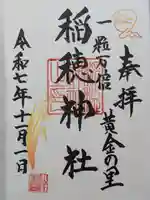 奉拝
黄金の里
一粒万倍
稲穂神社
令和七年十一月一日